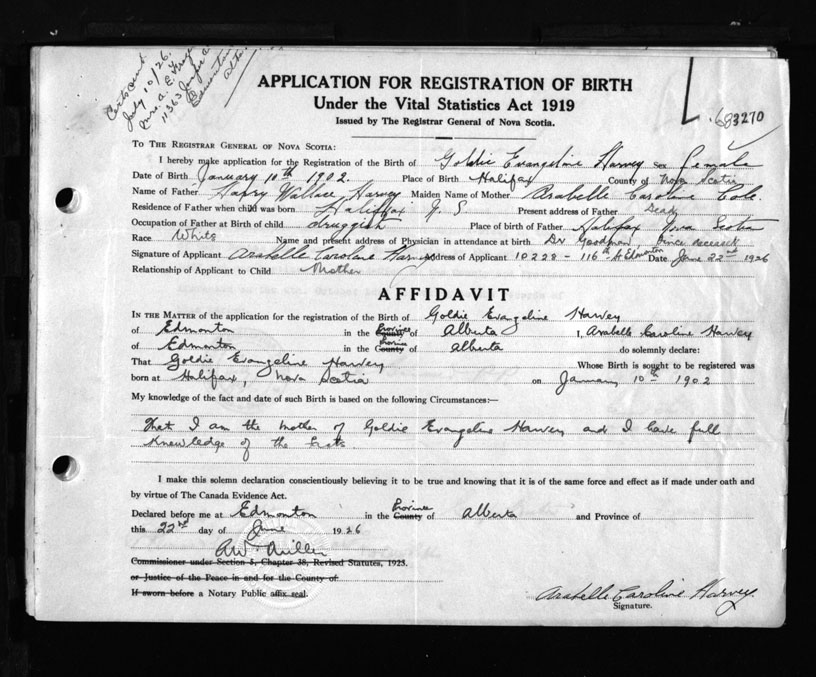 Cert sent.
July 10/26.
Mrs. A. E.
11363
Edmonton
Alta.
.683270
APPLICATION FOR REGISTRATION OF BIRTH
Under the Vital Statistics Act 1919
Issued by The Registrar General of Nova Scotia.
TO THE REGISTRAR GENERAL OF NOVA SCOTIA:
I hereby make application for the Registration of the Birth of Goldie Evangeline Harvey Sex female
Date of Birth January 10th 1902. Place of Birth Halifax County of Nova Scotia
Name of Father Harry Wallace Harvey Maiden Name of Mother Arabelle Caroline Cole.
Residence of Father when child was born Halifax N. S Present address of Father Dead
Occupation of Father at Birth of child druggist Place of birth of Father Halifax Nova Scotia
Race White Name and present address of Physician in attendance at birth Dr Goodman, since deceased
Signature of Applicant Arabelle Caroline Harvey Address of Applicant 10228 - 116th St Edmonton Date June 22nd 1926
Relationship of Applicant to Child Mother
AFFIDAVIT
IN THE MATTER of the application for the registration of Birth of Goldie Evangeline Harvey
of Edmonton in the County Province of Alberta I, Arabelle Caroline Harvey
of Edmonton in the County Province of Alberta do solemnly declare:
That Goldie Evangeline Harvey Whose Birth is sought to be registered was
born at Halifax, Nova Scotia on January 10th 1902
My knowledge of the fact and date of such Birth is based on the following Circumstances:—
That I am the mother of Goldie Evangeline Harvey and I have full
knowledge of the facts.
I make this solemn declaration conscientiously believing it to be true and knowing that it is of the same force and effect as if made under oath and
by virtue of The Canada Evidence Act.
Declared before me at Edmonton in the County Province of Alberta and Province of
this 22nd day of June 1926
AW Miller
Commissioner under Section 5, Chapter 38, Revised Statutes, 1923.
or Justice of the Peace in and for the County of
If sworn before a Notary Public affix seal.
Arabelle Caroline Harvey
Signature.